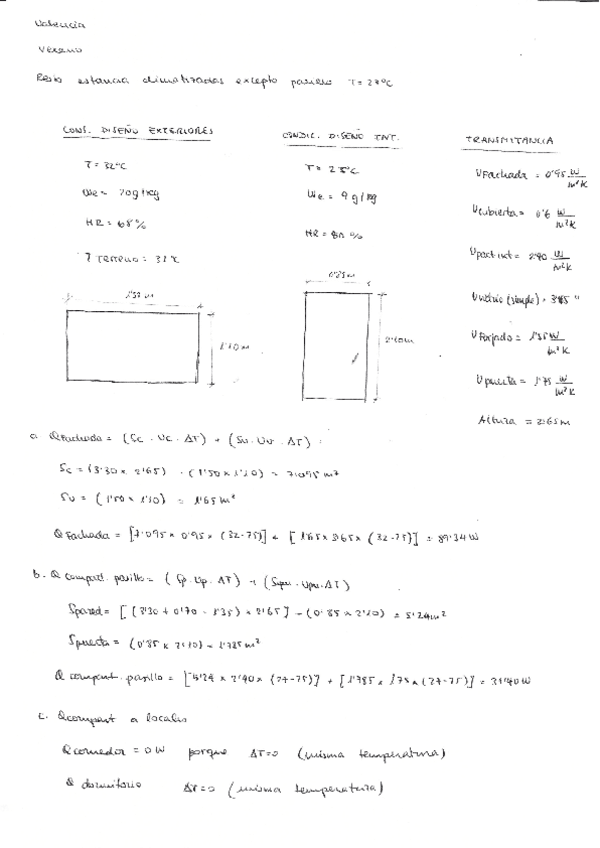 Valencia
Verano
Resto estancias climatizadas excepto pasillo T=27ºC
COND. DISEÑO EXTERIORES
T = 32ºC
We = 20g/kg
HR = 68%
T terreno = 31ºC
CONDIC. DISEÑO INT.
T = 25ºC
We = 9 g/kg
HR = %
TRANSMITANCIA
UFachada = 0'95 W/m²K
Ucubierta = 0'6 W/m²K
Upart int = 2'40 W/m²K
Uvidrio (simple) = "
UForjado = 1'35 W/m²K
Upuerta = 1'75 W/m²K
Altura = 2'65m
1'50 m
1'10m
0'85m
2'10m
a. QFachada = (Sc · Uc · ΔT) + (Sv · Uv · ΔT) :
Sc = (3'30 x 2'65) - (1'50 x 1'10) = 7'095 m²
Sv = (1'50 x 1'10) = 1'65 m²
QFachada = [7'095 x 0'95 x (32-25)] + [1'65 x 3'65 x (32-25)] = 89'34 W
b. Q compart. pasillo = (Sp · Up · ΔT) + (Spu · Upu · ΔT)
Spared = [(3'30 + 0'70 - 1'35) x 2'65] - (0'85 x 2'10) = 5'24m²
Spuerta = (0'85 x 2'10) = 1'785 m²
Q compart. pasillo = [5'24 x 2'40 x (27-25)] + [1'785 x 1'75 x (27-25)] = 31'40 W
c. Qcompart a locales
Qcomedor = 0W porque ΔT=0 (misma temperatura)
Q dormitorio ΔT=0 (misma temperatura)